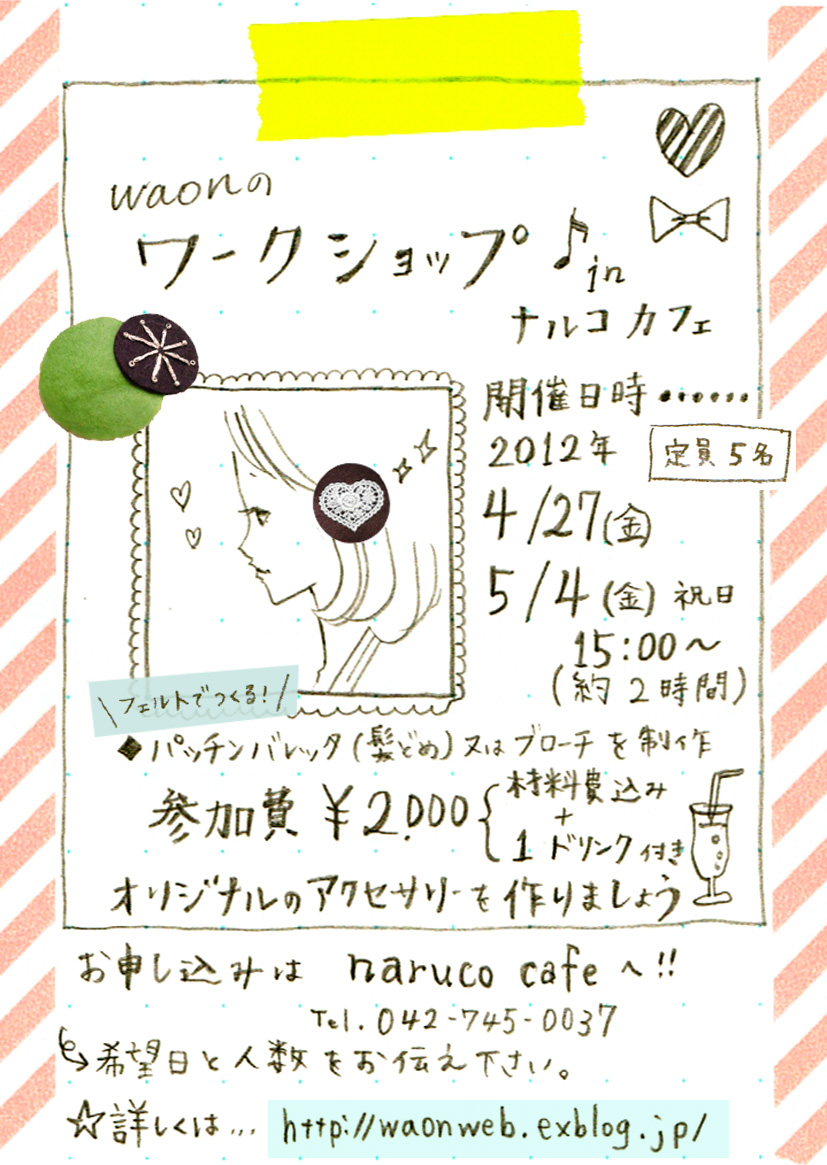 waonの
ワークショップ♪in
ナルコカフェ
開催日時・・・・・・
2012年
定員5名
4/27(金)
5/4(金)祝日
15:00〜
(約2時間)
\フェルトでつくる!/
◆パッチンバレッタ(髪どめ)又はブローチを制作
参加費¥2.000
材料費込み
+
1ドリンク付き
オリジナルのアクセサリーを作りましょう
お申し込みは naruco cafeへ!!
Tel.042-745-0037
↪希望日と人数をお伝え下さい。
☆詳しくは...http://waonweb.exblog.jp/